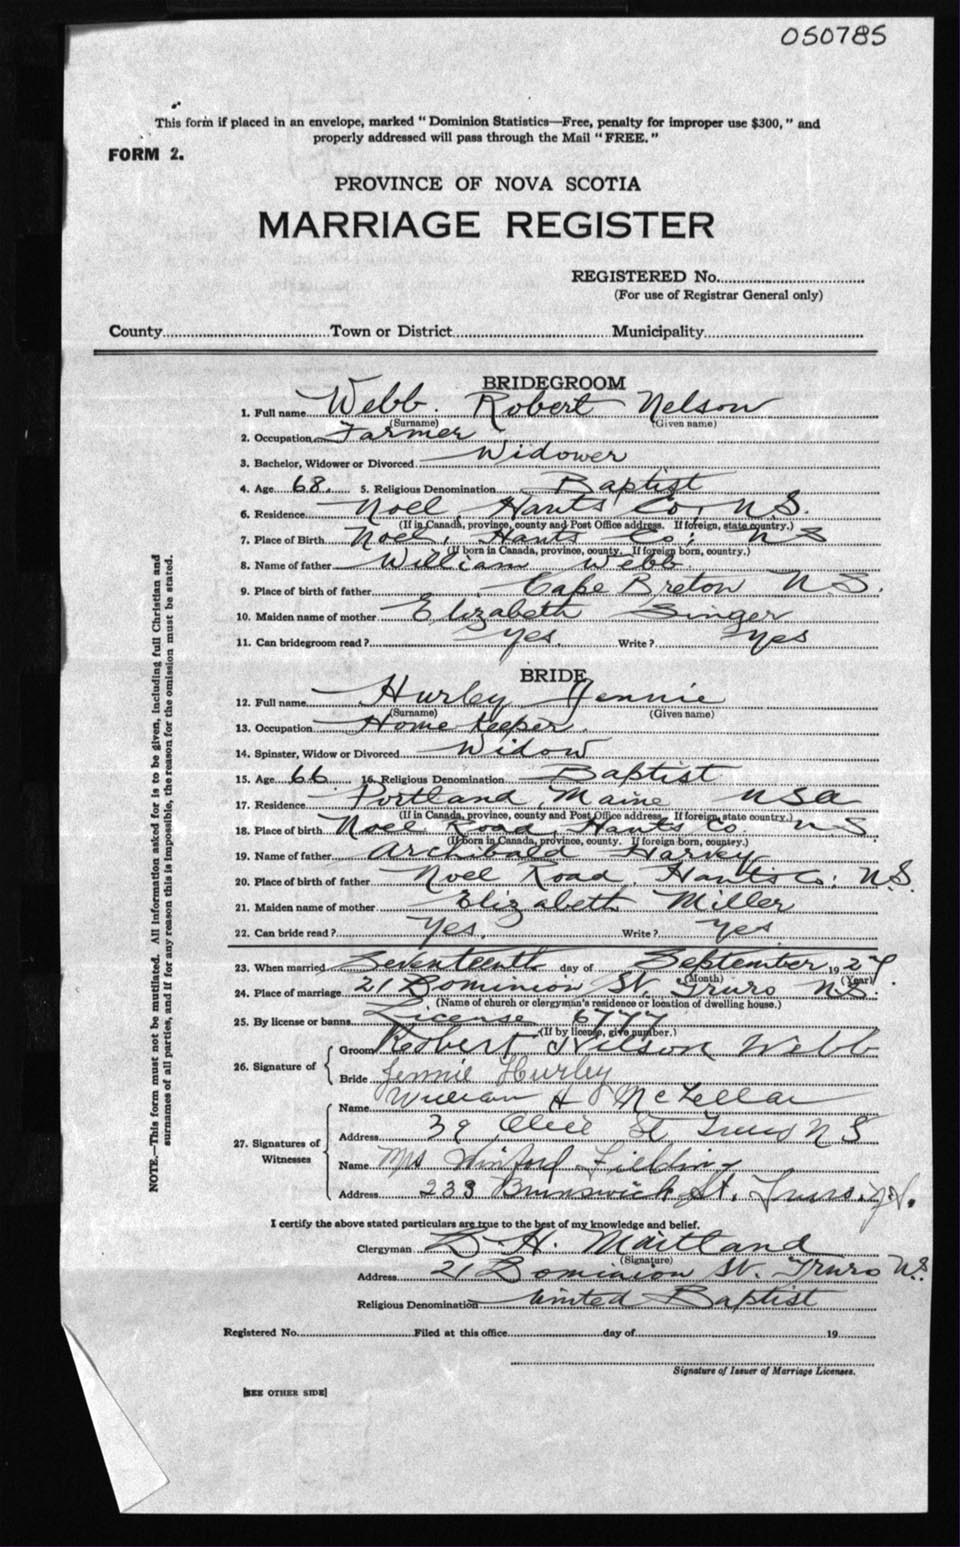 050785
This form if placed in an envelope, marked "Dominion Statistics—Free, penalty for improper use $300," and
properly addressed will pass through the Mail "FREE."
FORM 2.
PROVINCE OF NOVA SCOTIA
MARRIAGE REGISTER
REGISTERED No.
(For use of Registrar General only)
County Town or District Municipality
BRIDEGROOM
1. Full name Webb. Robert Nelson
(Surname) (Given name)
2. Occupation Farmer
3. Bachelor, Widower or Divorced Widower
4. Age 68. 5. Religious Denomination Baptist
6. Residence Noel, Hants Co, N.S.
(If in Canada, province, county and Post Office address. If foreign, state country.)
7. Place of Birth Noel, Hants Co; NS
(If born in Canada, province, county. If foreign born, country.)
8. Name of father William Webb.
9. Place of birth of father Cape Breton N.S.
10. Maiden name of mother Elizabeth Singer
11. Can bridegroom read? Yes. Write? Yes
BRIDE
12. Full name Hurley Jennie
(Surname) (Given name)
13. Occupation Home Keeper.
14. Spinster, Widow or Divorced Widow
15. Age 66 16. Religious Denomination Baptist
17. Residence Portland, Maine USA
(If in Canada, province, county and Post Office address. If foreign, state country.)
18. Place of birth Noel Road, Hants Co. NS
(If born in Canada, province, county. If foreign born, country.)
19. Name of father Archibald Harvey
20. Place of birth of father Noel Road, Hants Co; N.S.
21. Maiden name of mother Elizabeth Miller
22. Can bride read? Yes. Write? Yes
23. When married Seventeenth day of September 1927
(Month) (Year)
24. Place of marriage 21 Dominion St. Truro N.S.
(Name of church or clergyman's residence or location of dwelling house.)
25. By license or banns License 6777
(If by license, give number.)
26. Signature of
Groom Robert Nilson Webb
Bride Jennie Hurley
27. Signatures of Witnesses
Name William H McLellan
Address 39 Alice St Truro N S
Name Mrs Winford Fielding
Address 233 Brunswick St. Truro. N.S.
I certify the above stated particulars are true to the best of my knowledge and belief.
Clergyman D. H. Maitland
(Signature)
Address 21 Dominion St. Truro N.S.
Religious Denomination United Baptist
Registered No. Filed at this office day of 19
Signature of Issuer of Marriage Licenses.
[SEE OTHER SIDE]
NOTE.—This form must not be mutilated. All information asked for is to be given, including full Christian and
surnames of all parties, and if for any reason this is impossible, the reason for the omission must be stated.